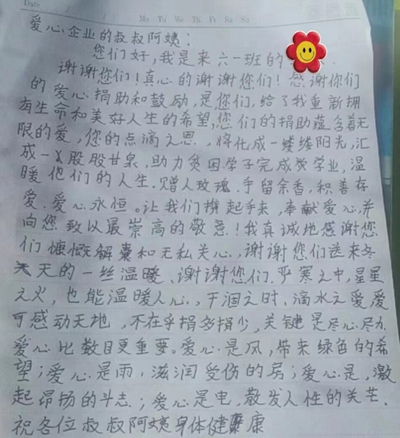 Date
Mo Tu We Th Fr Sa Su
爱心企业的叔叔阿姨：
您们好，我是来六一班的
谢谢您们！真心的谢谢您们！感谢你们
的爱心捐助和鼓励，是您们，给了我重新拥
有生命和美好人生的希望，您们的捐助蕴含着无
限的爱，您的点滴之恩，将化成一缕缕阳光，汇
成一股股甘泉，助力贫困学子完成学业，温
暖他们的人生。赠人玫瑰，手留余香，积善存
爱，爱心永恒。让我们携起手来，奉献爱心，并
向您致以最崇高的敬意！我真诚地感谢您
们慷慨解囊和无私关心，谢谢您们送来冬
天的一丝温暖，谢谢您们，严寒之中，星星
之火，也能温暖人心，干涸之时，滴水之爱爱
可感动天地，不在乎捐多捐少，关键是尽心尽力
爱心比数目更重要。爱心是风，带来绿色的希
望；爱心是雨，滋润受伤的局；爱心是，激
起昂扬的斗志；爱心是电，散发人性的关芒。
祝各位叔叔阿姨身体健康